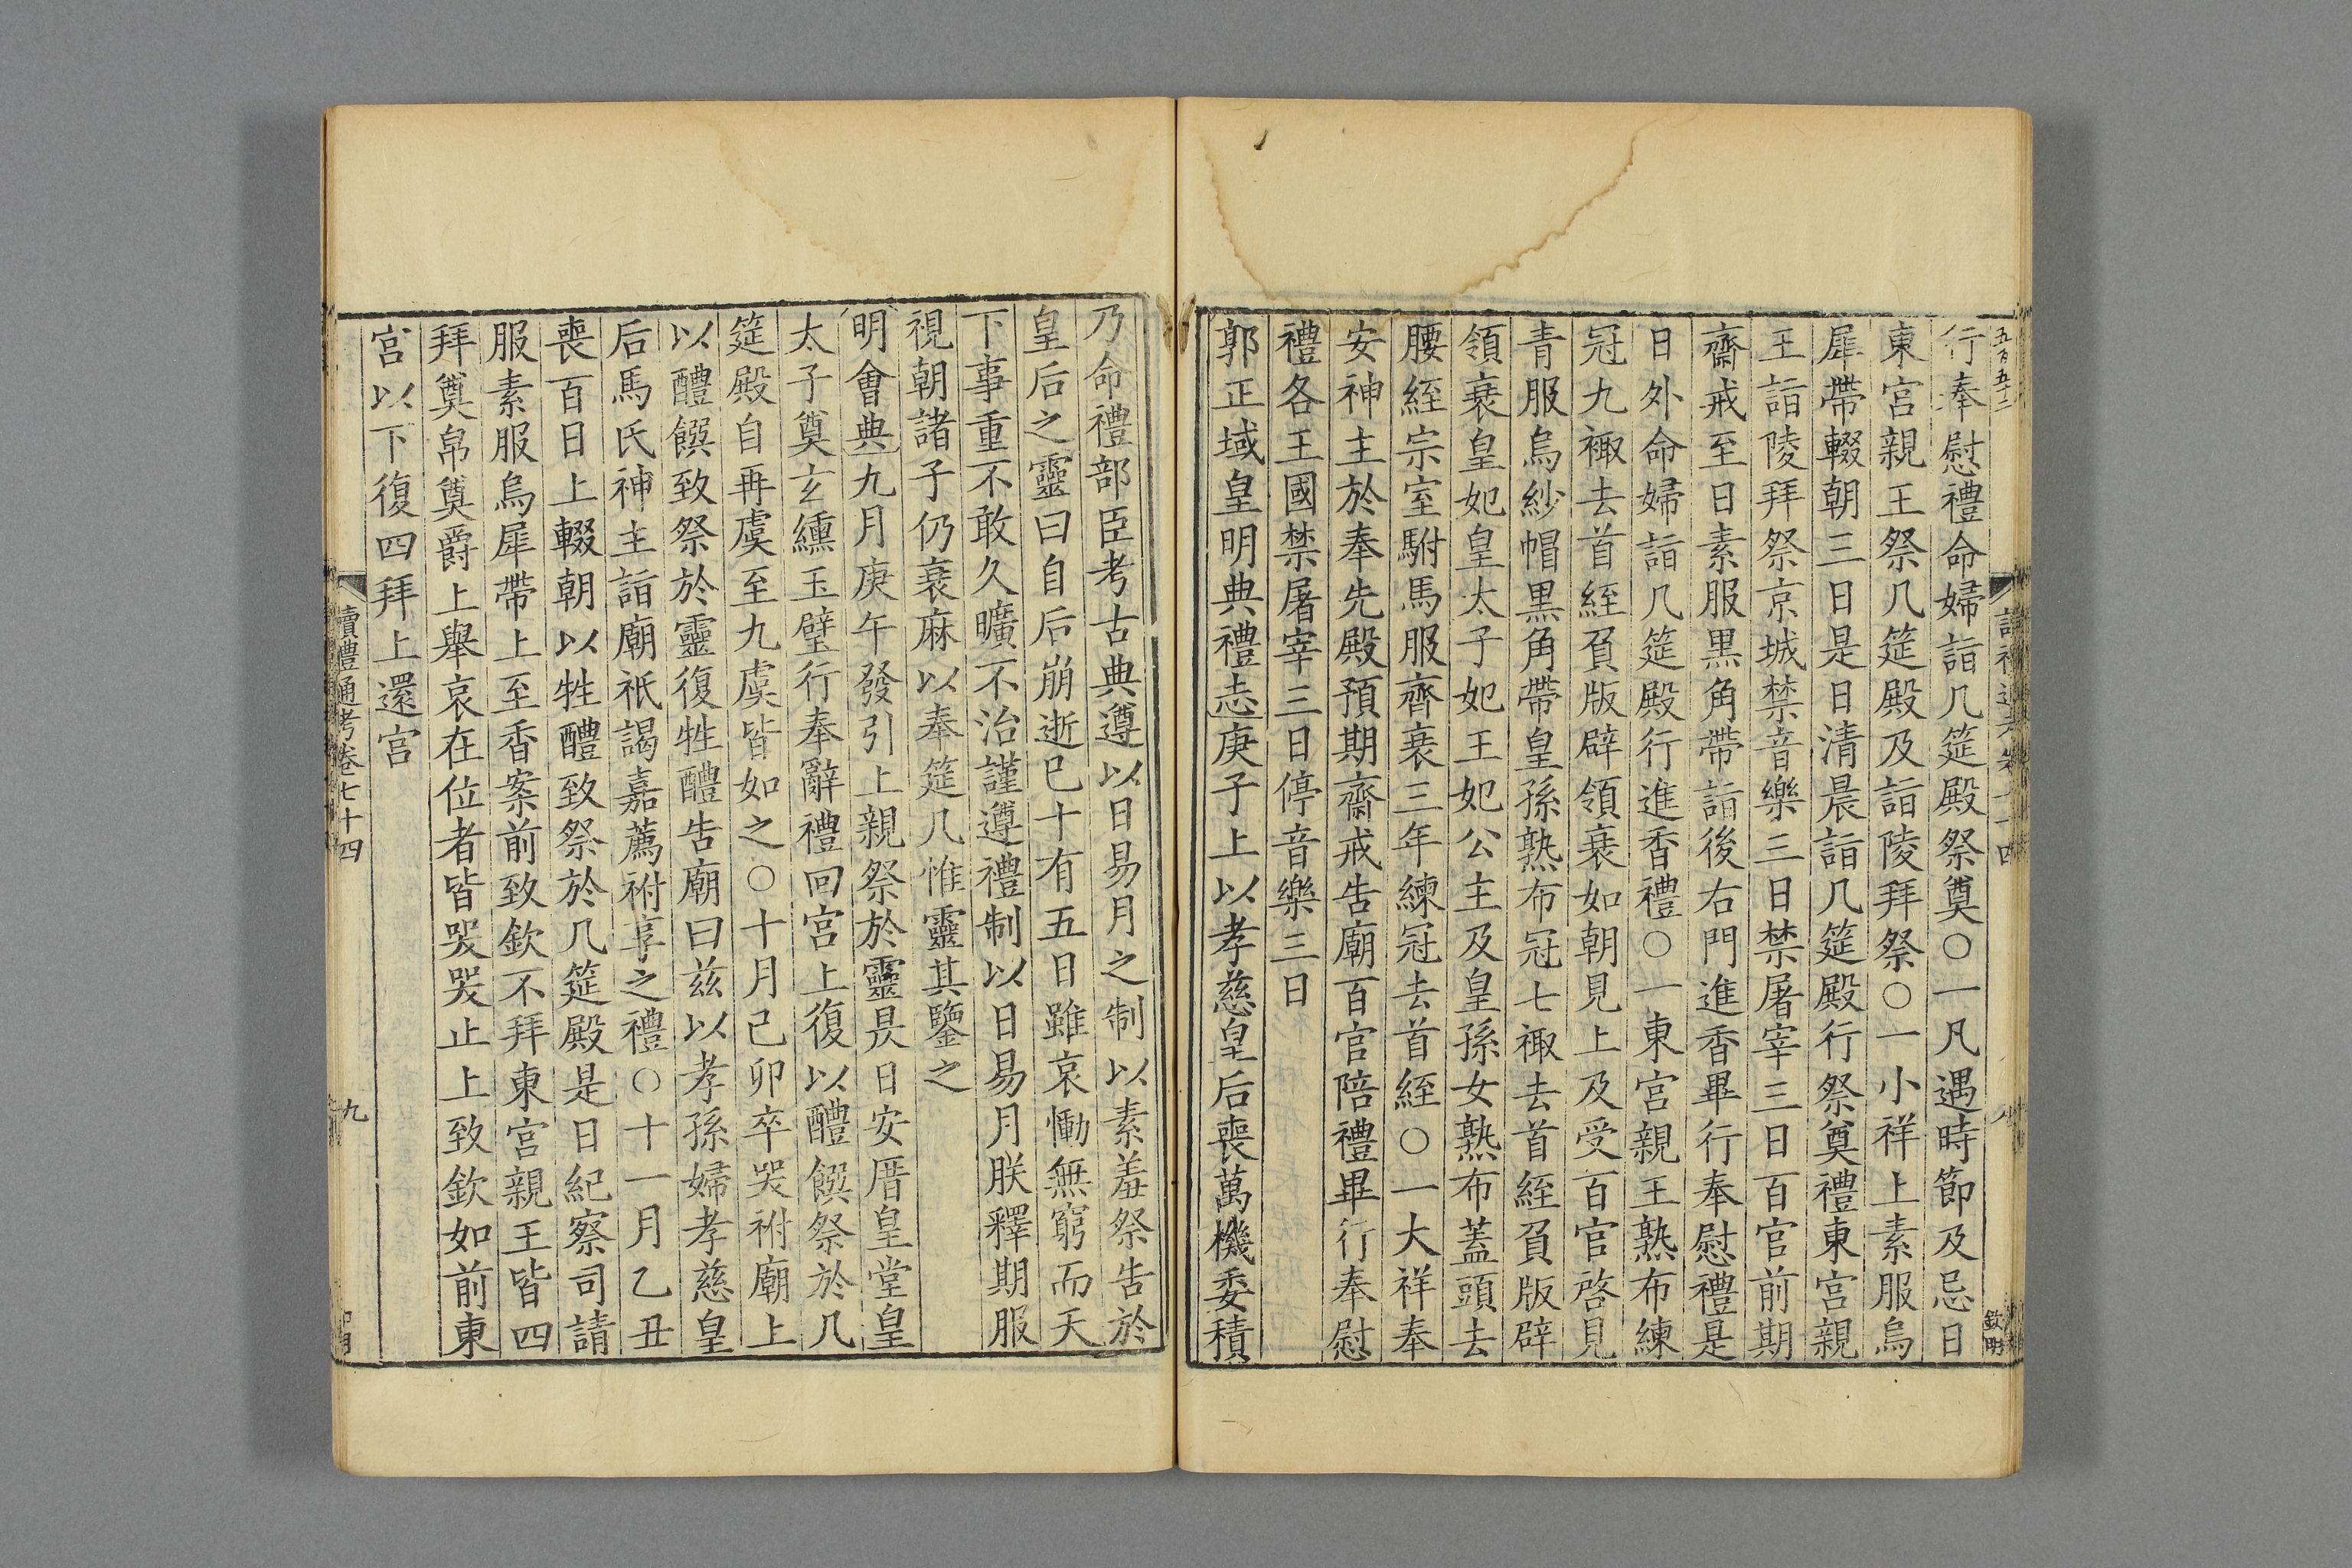 行奉慰禮命婦詣几筵殿祭奠○一凡遇時節及忌日
東宮親王祭几筵殿及詣陵拜祭○一小祥上素服烏
犀帶輟朝三日是日清晨詣几筵殿行祭奠禮東宮親
王詣陵拜祭京城禁音樂三日禁屠宰三日百官前期
齋戒至日素服黑角帶詣後右門進香畢行奉慰禮是
日外命婦詣几筵殿行進香禮○一東宮親王熟布練
冠九𧝓去首絰負版辟領衰如朝見上及受百官啓見
青服烏紗帽黑角帶皇孫熟布冠七𧝓去首絰負版辟
領衰皇妃皇太子妃王妃公主及皇孫女熟布蓋頭去
腰絰宗室駙馬服齊衰三年練冠去首絰○一大祥奉
安神主於奉先殿預期齋戒告廟百官陪禮畢行奉慰
禮各王國禁屠宰三日停音樂三日
郭正域皇明典禮志庚子上以孝慈皇后喪萬機委積
乃命禮部臣考古典遵以日易月之制以素羞祭告於
皇后之靈曰自后崩逝已十有五日雖哀慟無窮而天
下事重不敢久曠不治謹遵禮制以日易月朕釋期服
視朝諸子仍衰麻以奉筵几惟靈其鑒之
明會典九月庚午發引上親祭於靈昃日安厝皇堂皇
太子奠玄纁玉璧行奉辭禮回宮上復以醴饌祭於几
筵殿自再虞至九虞皆如之○十月己卯卒哭祔廟上
以醴饌致祭於靈復牲醴告廟曰茲以孝孫婦孝慈皇
后馬氏神主詣廟祇謁嘉薦祔享之禮○十一月乙丑
喪百日上輟朝以牲醴致祭於几筵殿是日紀察司請
服素服烏犀帶上至香案前致欽不拜東宮親王皆四
拜奠帛奠爵上舉哀在位者皆哭哭止上致欽如前東
宮以下復四拜上還宮
讀禮通考卷七十四
九